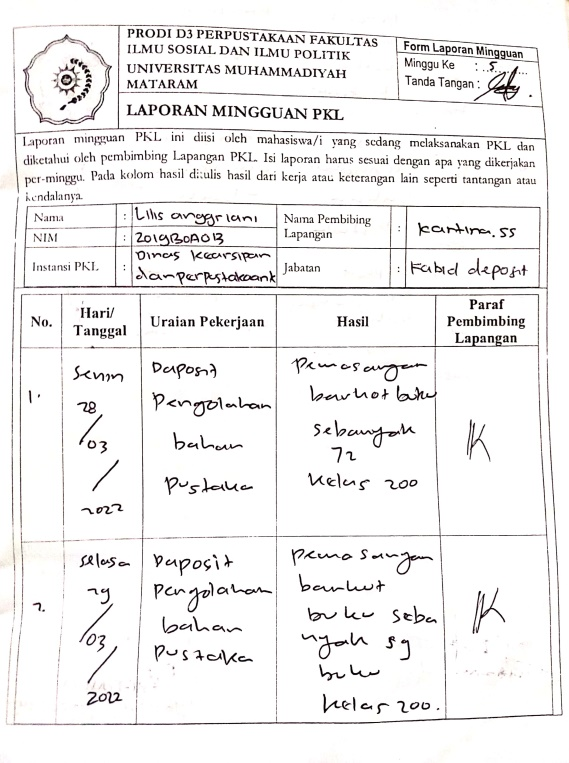 PRODI D3 PERPUSTAKAAN FAKULTAS
ILMU SOSIAL DAN ILMU POLITIK
UNIVERSITAS MUHAMMADIYAH
MATARAM
LAPORAN MINGGUAN PKL
Form Laporan Mingguan
Minggu Ke : ..5....
Tanda Tangan :
Laporan mingguan PKL ini diisi oleh mahasiswa/i yang sedang melaksanakan PKL dan
diketahui oleh pembimbing Lapangan PKL. Isi laporan harus sesuai dengan apa yang dikerjakan
per-minggu. Pada kolom hasil ditulis hasil dari kerja atau keterangan lain seperti tantangan atau
kendalanya
Nama : Lilis anggriani
NIM : 2019B0A013
Instansi PKL : Dinas kearsipan
danperpustakaank
Nama Pembibing
Lapangan : kartina.ss
Jabatan : Kabid deposit
No. Hari/
Tanggal Uraian Pekerjaan Hasil Paraf
Pembimbing
Lapangan
1. Senin
28
/03
/
2022
Daposit
Pengolahan
bahan
Pustaka
Pemasangan
barkot buku
sebanyak
72
kelas 200
2. Selasa
29
/03
/
2022
Daposit
Pengolahan
bahan
Pustaka
Pemasangan
barkot
buku seba
nyak 59
buku
kelas 200.